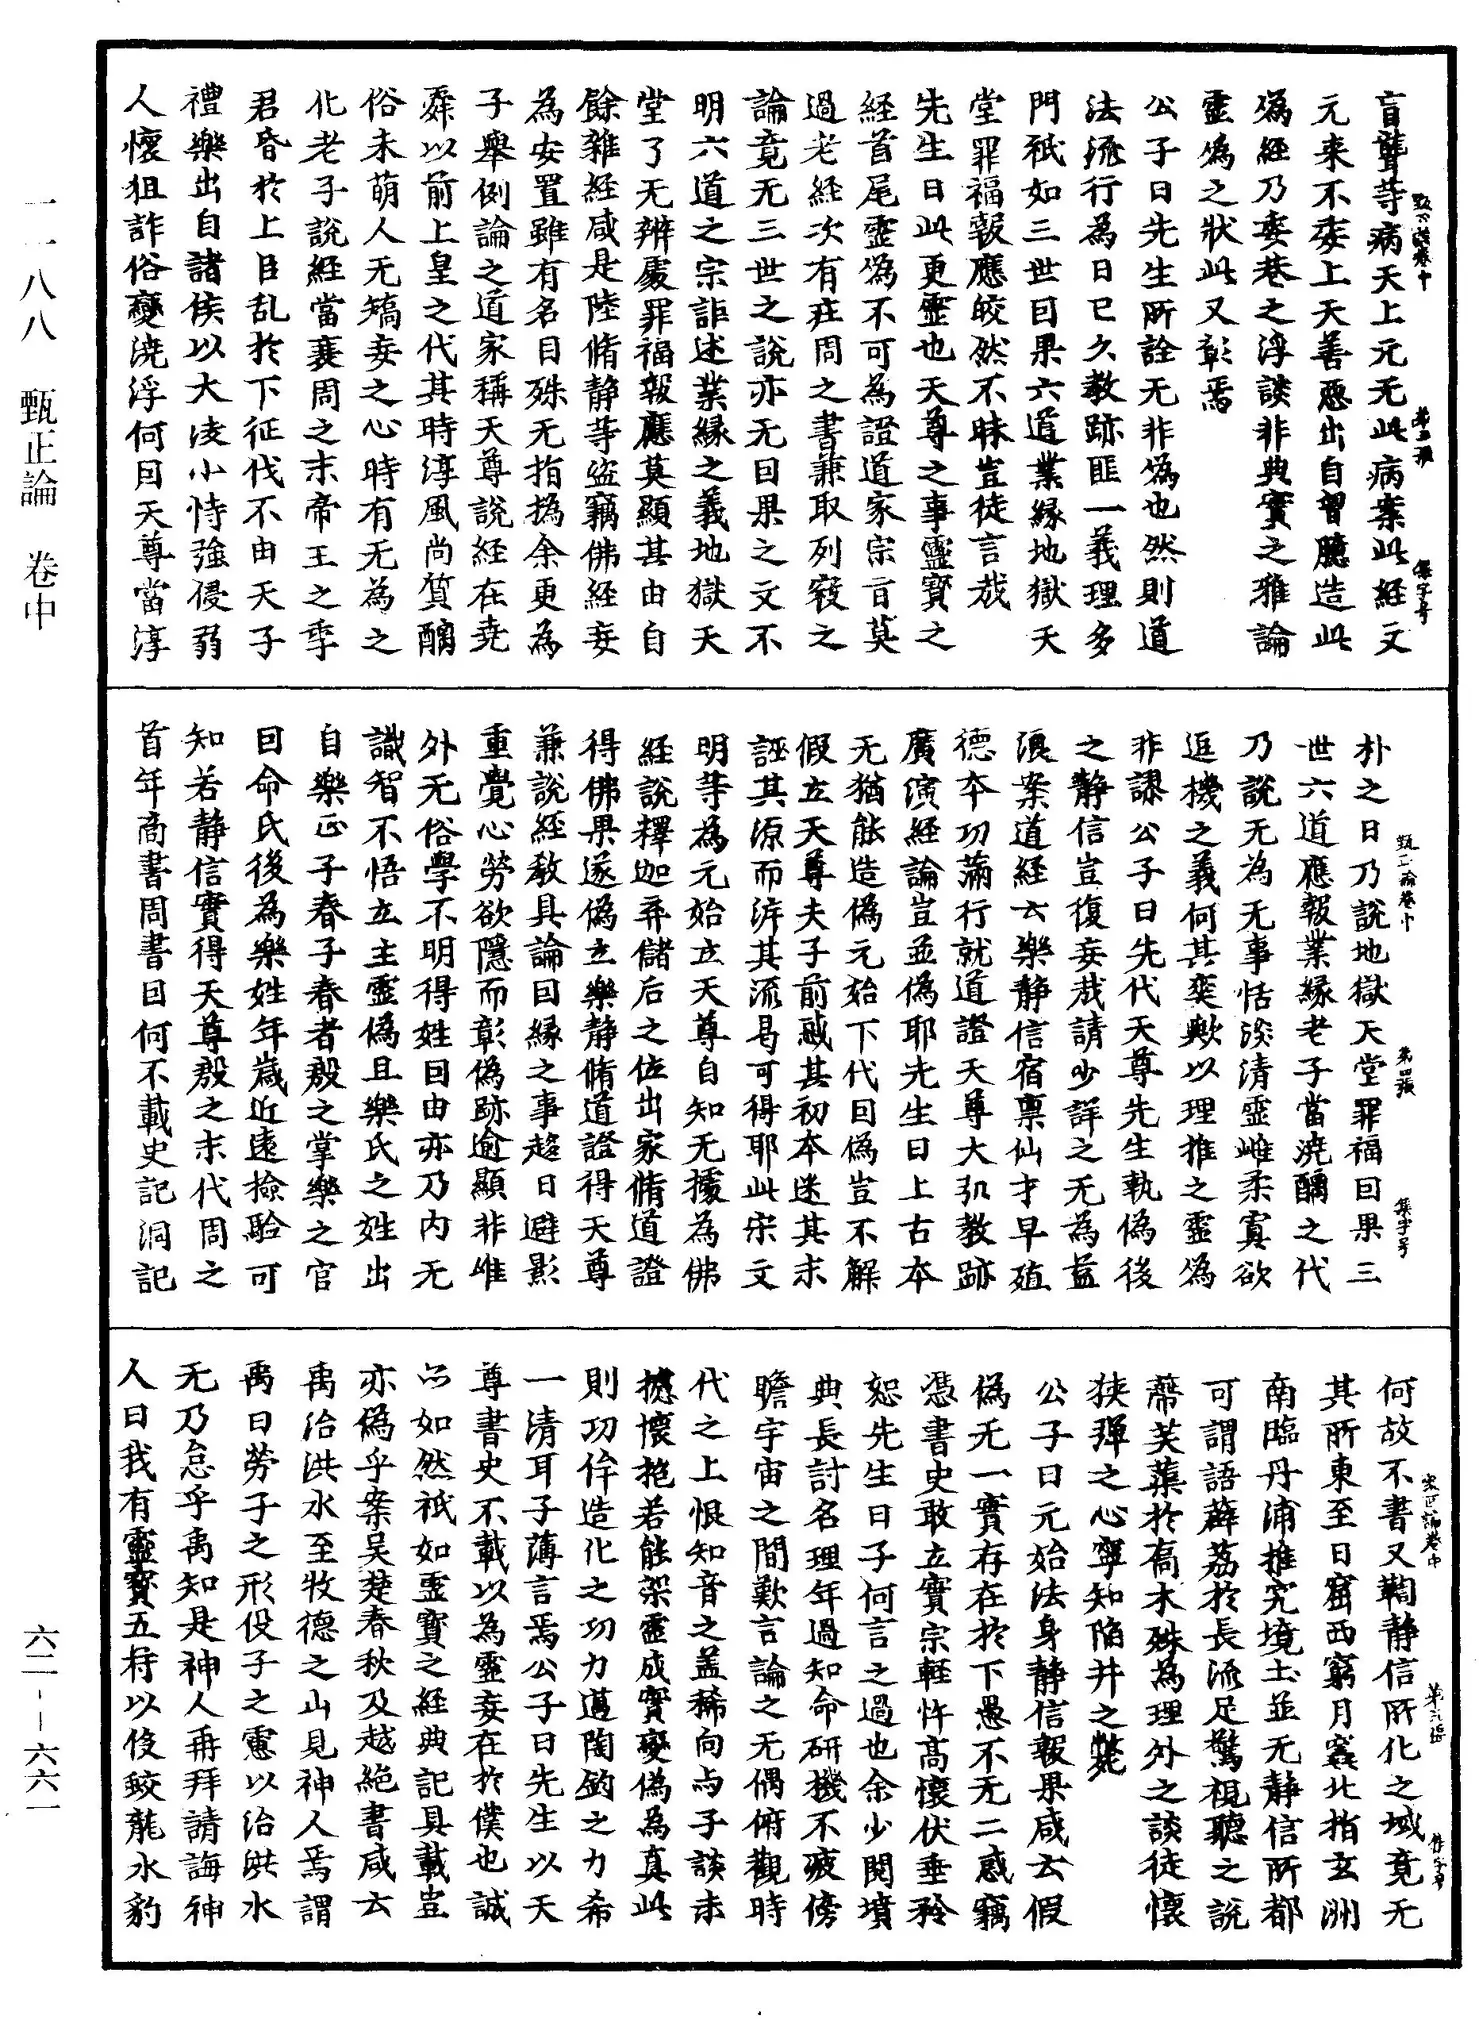 盲聾等病天上元无此病案此經文
元来不委上天善惡出自智臆造此
僞經乃委巷之浮談非典實之雅論
靈僞之狀此又彰焉
公子曰先生所詮无非僞也然則道
法流行為日已久教跡匪一義理多
門祇如三世因果六道業緣地獄天
堂罪福報應皎然不昧豈徒言哉
先生曰此更靈也天尊之事靈寶之
經首尾靈僞不可為證道家宗旨莫
過老經次有莊周之書兼取列㓂之
論竟无三世之說亦无因果之文不
明六道之宗詎述業緣之義地獄天
堂了无辨處罪福報應莫顯其由自
餘雜經咸是陸脩静等盜竊佛經妄
為安置雖有名目殊无指撝余更為
子舉例論之道家稱天尊說經在尭
舜以前上皇之代其時淳風尚質醨
俗未萌人无矯妄之心時有无為之
化老子說經當襄周之末帝王之季
君昏於上臣乱於下征伐不由天子
禮樂出自諸侯以大淩小恃強侵弱
人懷狙詐俗變澆浮何因天尊當淳
朴之日乃說地獄天堂罪福因果三
世六道應報業緣老子當澆醨之代
乃說无為无事恬淡清靈雌柔寘欲
逗機之義何其奕歟以理推之靈僞
非謬公子曰先代天尊先生執偽後
之静信豈復妄哉請少詳之无為孟
浪案道經云樂静信宿稟仙才早殖
德夲功滿行就道證天尊大弘教跡
廣演經論豈並偽耶先生曰上古夲
无猶能造偽元始下代因偽豈不解
假立天尊夫子前惑其初夲迷其末
誣其源而泝其流曷可得耶此宋文
明等為元始立天尊自知无據為佛
經說釋迦弃儲后之位出家脩道證
得佛果遂偽立樂静脩道證得天尊
兼說經教具論因緣之事趍日避影
重覺心勞欲隱而彰偽跡逾顯非唯
外无俗學不明得姓因由亦乃内无
識智不悟立主靈偽且樂氏之姓出
自樂正子春子春者殷之掌樂之官
因命氏後為樂姓年嵗近遠撿驗可
知若静信實得天尊殷之末代周之
首年商書周書因何不載史記洞記
何故不書又鞫静信所化之域竟无
其所東至日窟西窮月竁北指玄洲
南臨丹浦推究境土並无静信所都
可謂語薜荔於長流足驚視聽之說
蔕芙蕖於髙木殊為理外之談徒懷
狹彈之心寧知陷井之斃
公子曰元始法身静信報果咸去假
偽无一實存在於下愚不无二惑竊
憑書史敢立實宗輕忤髙懷伏垂矜
恕先生曰子何言之過也余少閱墳
典長討名理年過知命研機不疲傍
瞻宇宙之間歎言論之无偶俯觀時
代之上恨知音之盖稀向与子談未
攄懷抱若能架靈成實變偽為真此
則功侔造化之功力邁陶鈞之力希
一清耳子薄言焉公子曰先生以天
尊書史不載以為靈妄在於僕也誠
以如然祇如靈寶之經典記具載豈
亦偽乎案吴楚春秋及越絕書咸云
禹治洪水至牧德之山見神人焉謂
禹曰勞子之形役子之慮以治洪水
无乃怠乎禹知是神人再拜請誨神
人曰我有靈寶五符以伇蛟龍水豹
甄正論卷中 第三張 集字号
甄正論卷中 第四張 集字号
一一八八 甄正論 卷中
六二－六六一